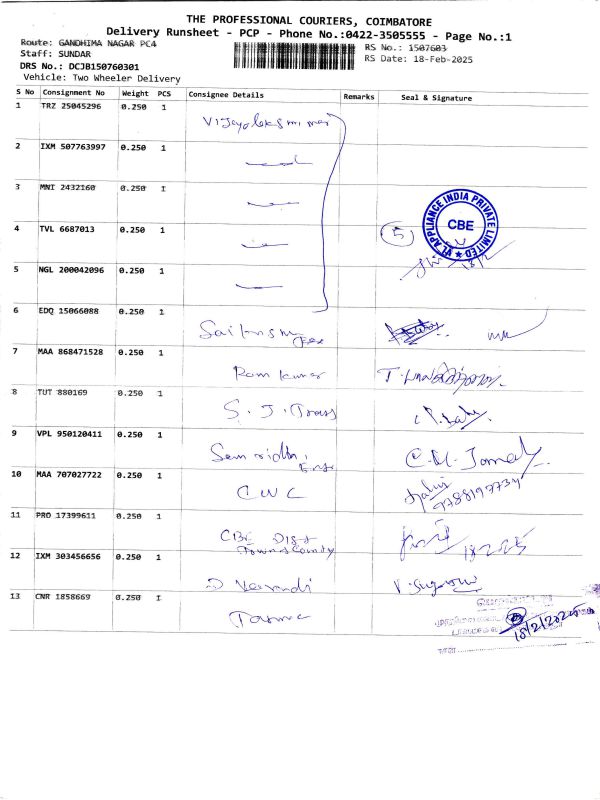 THE PROFESSIONAL COURIERS, COIMBATORE
Delivery Runsheet - PCP - Phone No.:0422-3505555 - Page No.:1
Route: GANDHIMA NAGAR PC4
RS No.: 1507603
Staff: SUNDAR
RS Date: 18-Feb-2025
DRS No.: DCJB150760301
Vehicle: Two Wheeler Delivery
S No Consignment No Weight PCS Consignee Details Remarks Seal & Signature
1 TRZ 25045296 0.250 1
2 IXM 507763997 0.250 1
3 MNI 2432160 0.250 1
4 TVL 6687013 0.250 1 5
VL APPLIANCE INDIA PRIVATE LIMITED
CBE
18/2
5 NGL 200042096 0.250 1
6 EDQ 15066088 0.250 1
7 MAA 868471528 0.250 1 Ram kumar
8 TUT 880169 0.250 1 S. J. Trans
9 VPL 950120411 0.250 1
10 MAA 707027722 0.250 1 CWC
9788197734
11 PRO 17399611 0.250 1 CBE Dist
Towns County 18 2025
12 IXM 303456656 0.250 1
13 CNR 1858669 0.250 1
18/2/2025